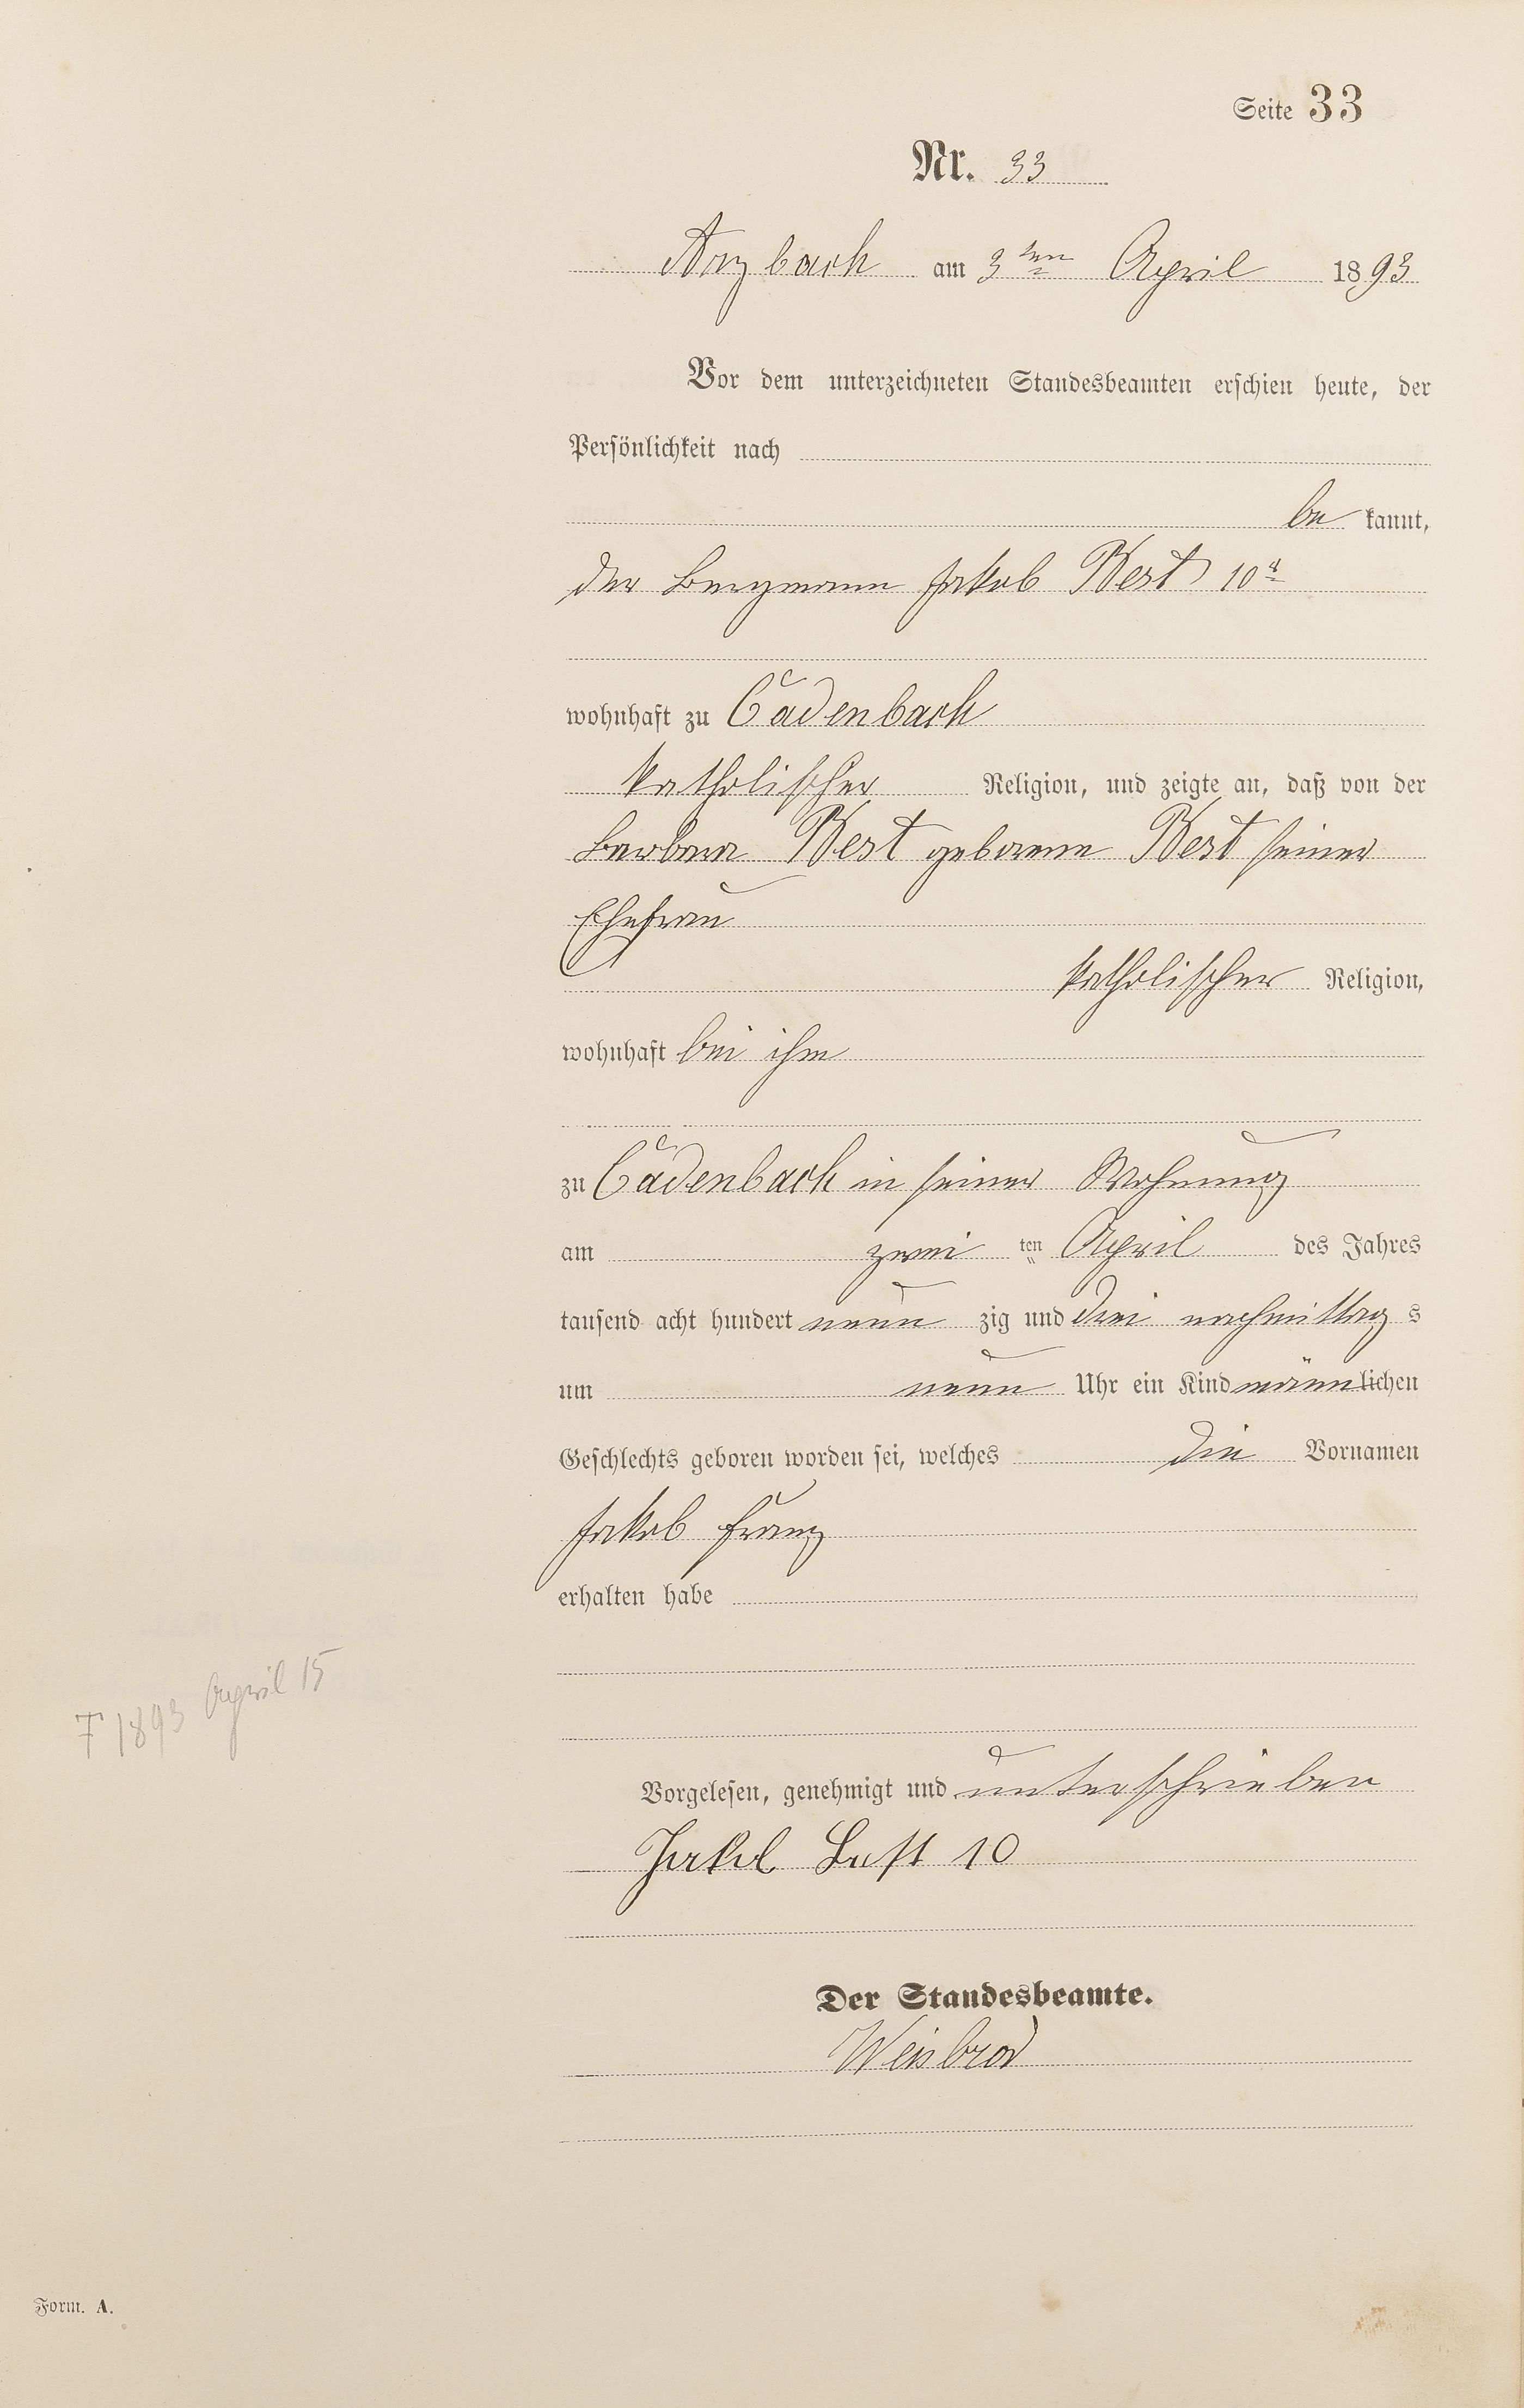 Seite 33
Nr. 33
Arzbach am 3ten April 1893
Vor dem unterzeichneten Standesbeamten erschien heute, der
Persönlichkeit nach
be kannt,
der Bergmann Jakob Best 10r
wohnhaft zu Cadenbach
katholischer Religion, und zeigte an, daß von der
Barbara Best geborene Best seiner
Ehefrau
katholischer Religion,
wohnhaft bei ihm
zu Cadenbach in seiner Wohnung
am zwei ten April des Jahres
tausend acht hundert neun zig und drei nachmittag s
um neun Uhr ein Kind männlichen
Geschlechts geboren worden sei, welches die Vornamen
Jakob Franz
erhalten habe
† 1893 April 15
Vorgelesen, genehmigt und unterschrieben
Jakob Best 10
Der Standesbeamte.
Weisbrod
Form. A.